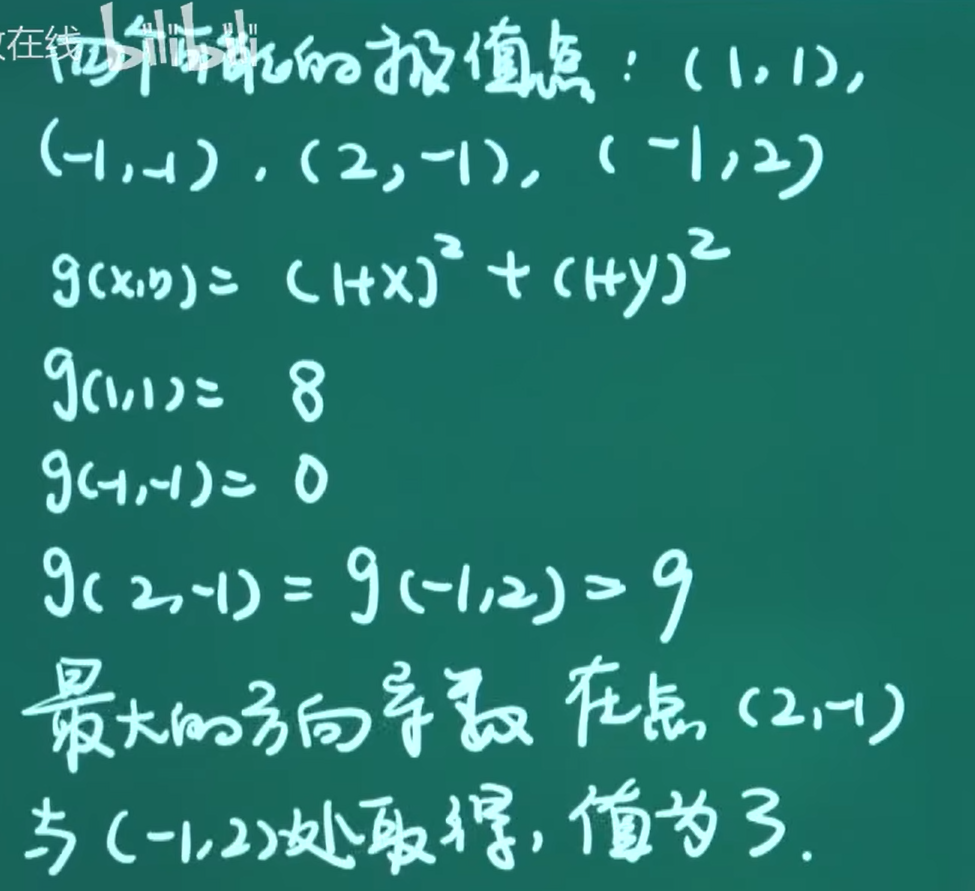 在线 bilibili
四个可能的极值点：(1,1),
(-1,-1), (2,-1), (-1,2)
g(x,y)= (1+x)² + (1+y)²
g(1,1)= 8
g(-1,-1)= 0
g(2,-1) = g(-1,2) = 9
最大的方向导数 在点 (2,-1)
与(-1,2)处取得, 值为3.